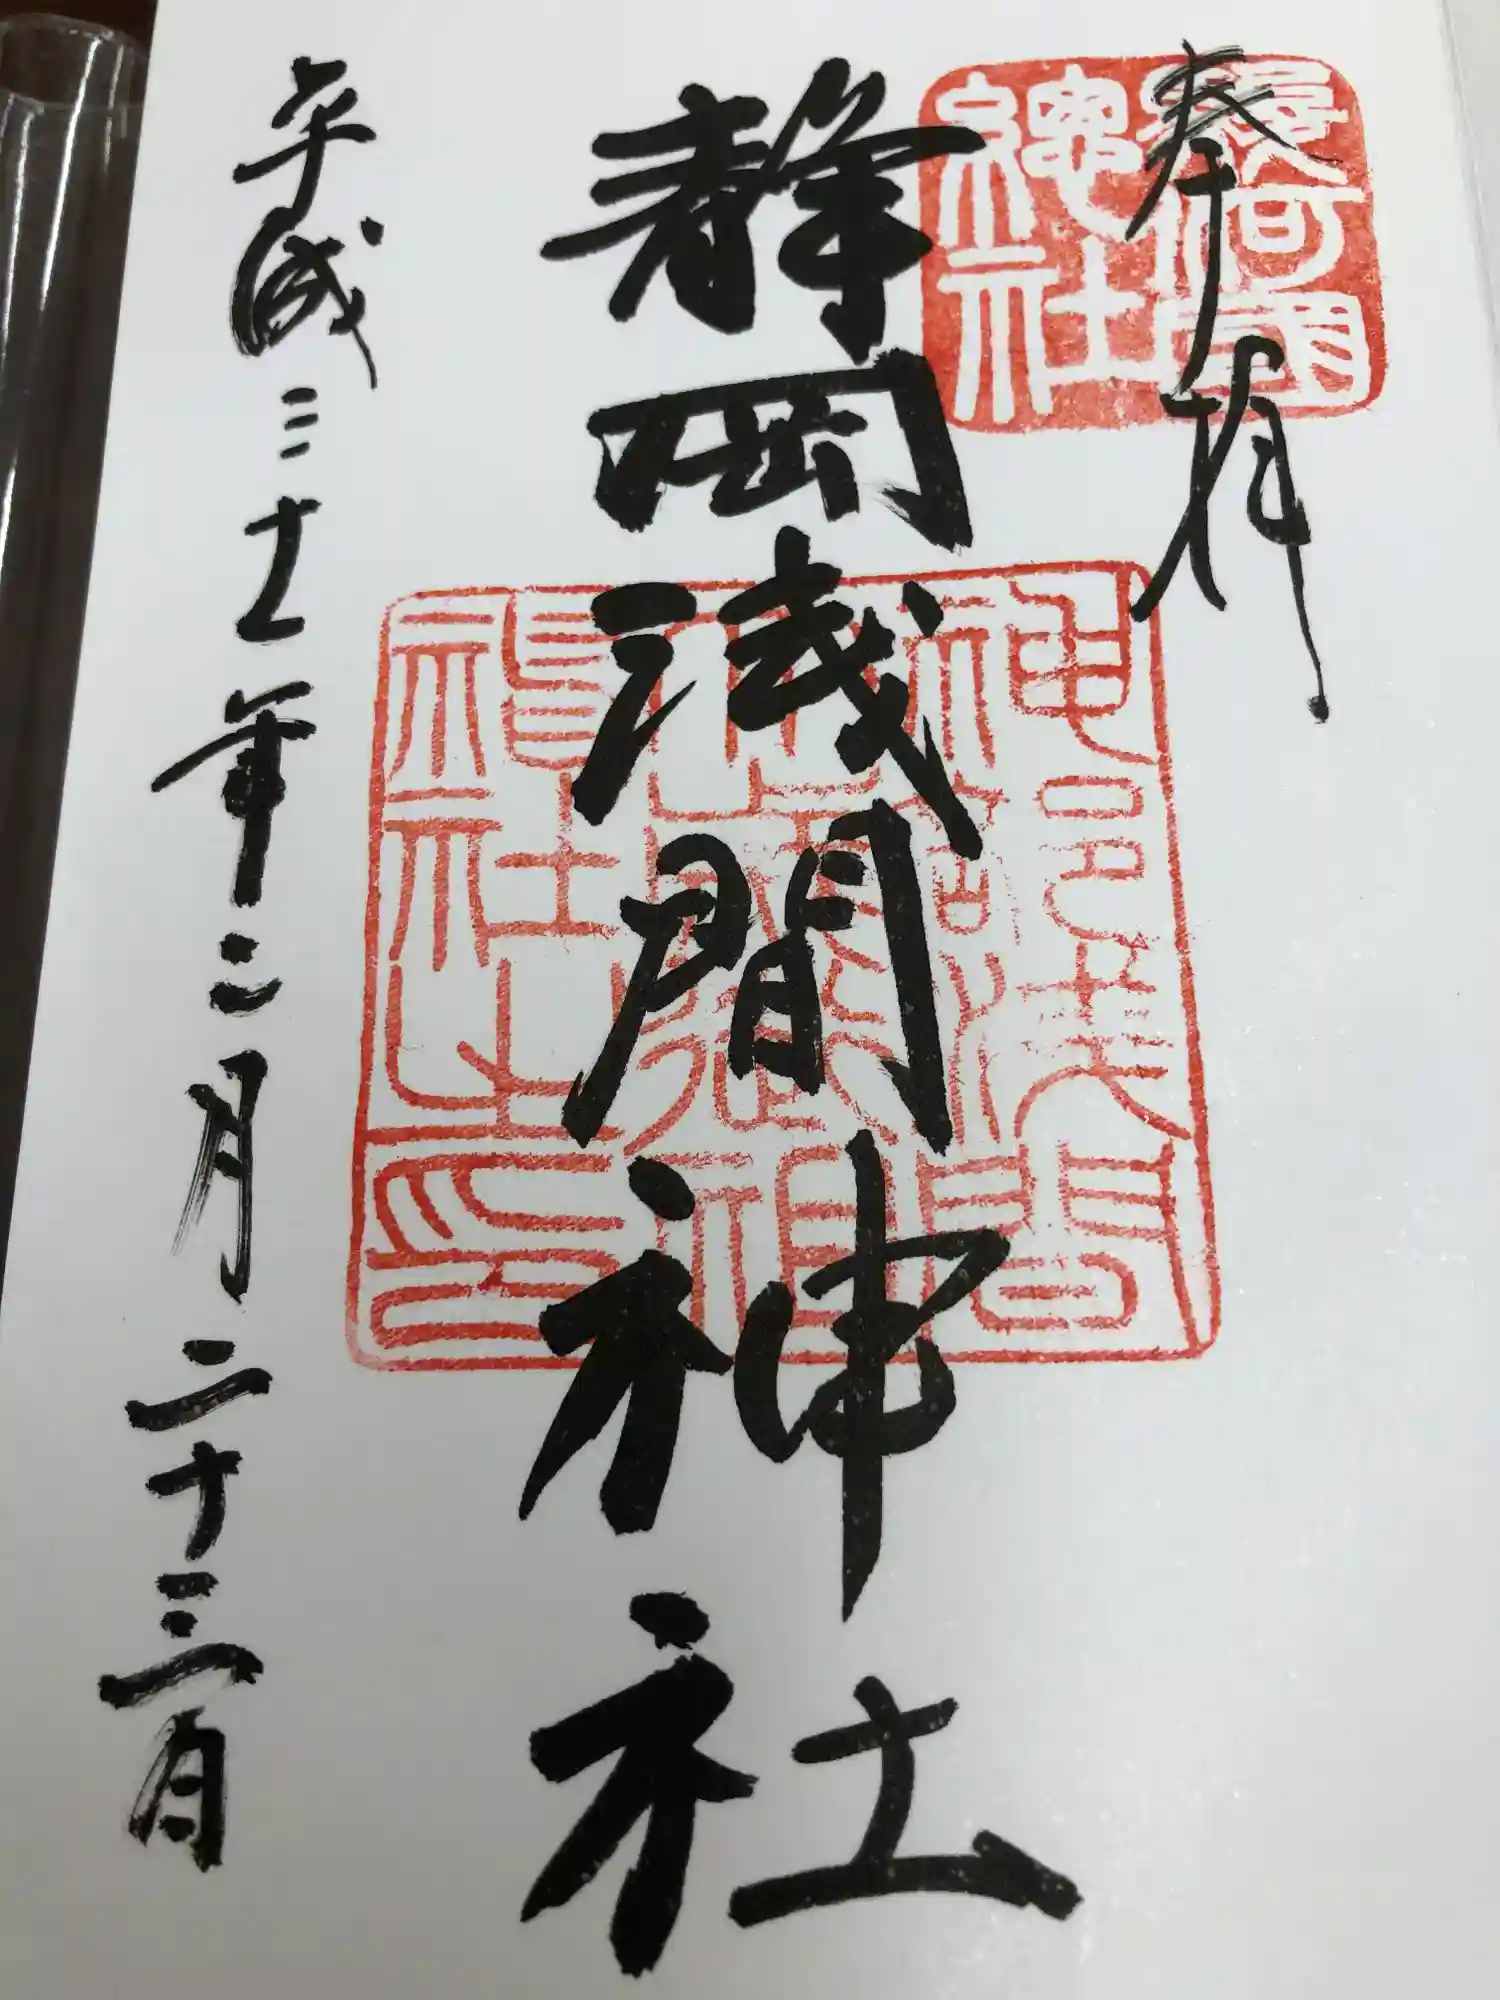 奉拝
駿河國
總社
靜岡浅間神社
神部浅間
大歳御祖
神社之印
平成三十一年二月二十三日